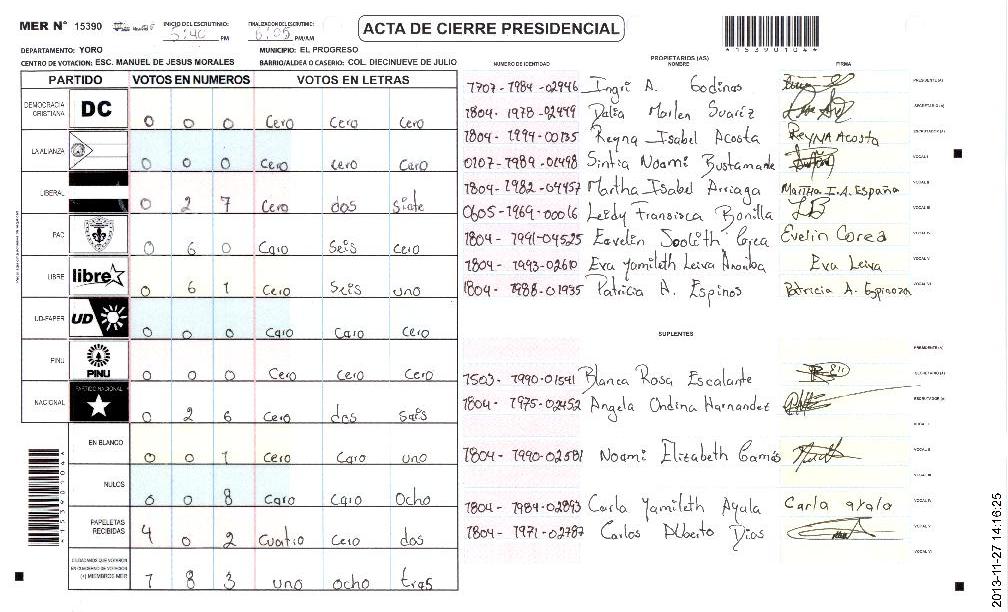 MER N° 15390 INICIO DEL ESCRUTINIO: 5:40 PM FINALIZACION DEL ESCRUTINIO: PM/AM ACTA DE CIERRE PRESIDENCIAL
*153901044*
DEPARTAMENTO: YORO MUNICIPIO: EL PROGRESO
CENTRO DE VOTACION: ESC. MANUEL DE JESUS MORALES BARRIO/ALDEA O CASERIO: COL. DIECINUEVE DE JULIO
PARTIDO VOTOS EN NUMEROS VOTOS EN LETRAS
DEMOCRACIA CRISTIANA DC 0 0 0 Cero Cero Cero
LA ALIANZA 0 0 0 Cero Cero Cero
LIBERAL 0 2 7 Cero dos Siete
PAC 0 6 0 Cero Seis Cero
LIBRE libre 0 6 1 Cero Seis uno
UD-FAPER UD 0 0 0 Cero Cero Cero
PINU PINU 0 0 0 Cero Cero Cero
NACIONAL PARTIDO NACIONAL 0 2 6 Cero dos Seis
EN BLANCO 0 0 1 Cero Cero uno
NULOS 0 0 8 Cero Cero Ocho
PAPELETAS RECIBIDAS 4 0 2 Cuatro Cero dos
CIUDADANOS QUE VOTARON EN CUADERNO DE VOTACION (+) MIEMBROS MER 1 8 3 uno ocho tres
PROPIETARIOS (AS)
NUMERO DE IDENTIDAD NOMBRE FIRMA
1707-1984-02946 Ingri A. Godinas PRESIDENTE (A)
1804-1978-02449 Dalia Marlen Suaréz SECRETARIO (A)
1804-1994-00135 Reyna Isabel Acosta REYNA Acosta ESCRUTADOR (A)
0107-1989-01498 Sintia Noami Bustamante VOCAL I
1804-1982-04457 Martha Isabel Arriaga Martha I.A. España VOCAL II
0605-1969-00016 Leidy Fransisca Bonilla LB VOCAL III
1804-1991-04525 Eavelin Evelin Corea VOCAL IV
1804-1993-02610 Eva Yamileth Leiva Eva Leiva VOCAL V
1804-1988-01935 Patricia A. Espinos Patricia A. Espinoza VOCAL VI
SUPLENTES
PRESIDENTE (A)
1503-1990-01541 Blanca Rosa Escalante SECRETARIO (A)
1804-1975-02452 Angela Ondina Hernandez ESCRUTADOR (A)
VOCAL I
1804-1990-02581 Noami Elizabeth VOCAL II
VOCAL III
1804-1984-02893 Carla Yamileth Ayala Carla ayala VOCAL IV
1804-1971-02787 Carlos Alberto Dias VOCAL V
VOCAL VI
2013-11-27 14:16:25